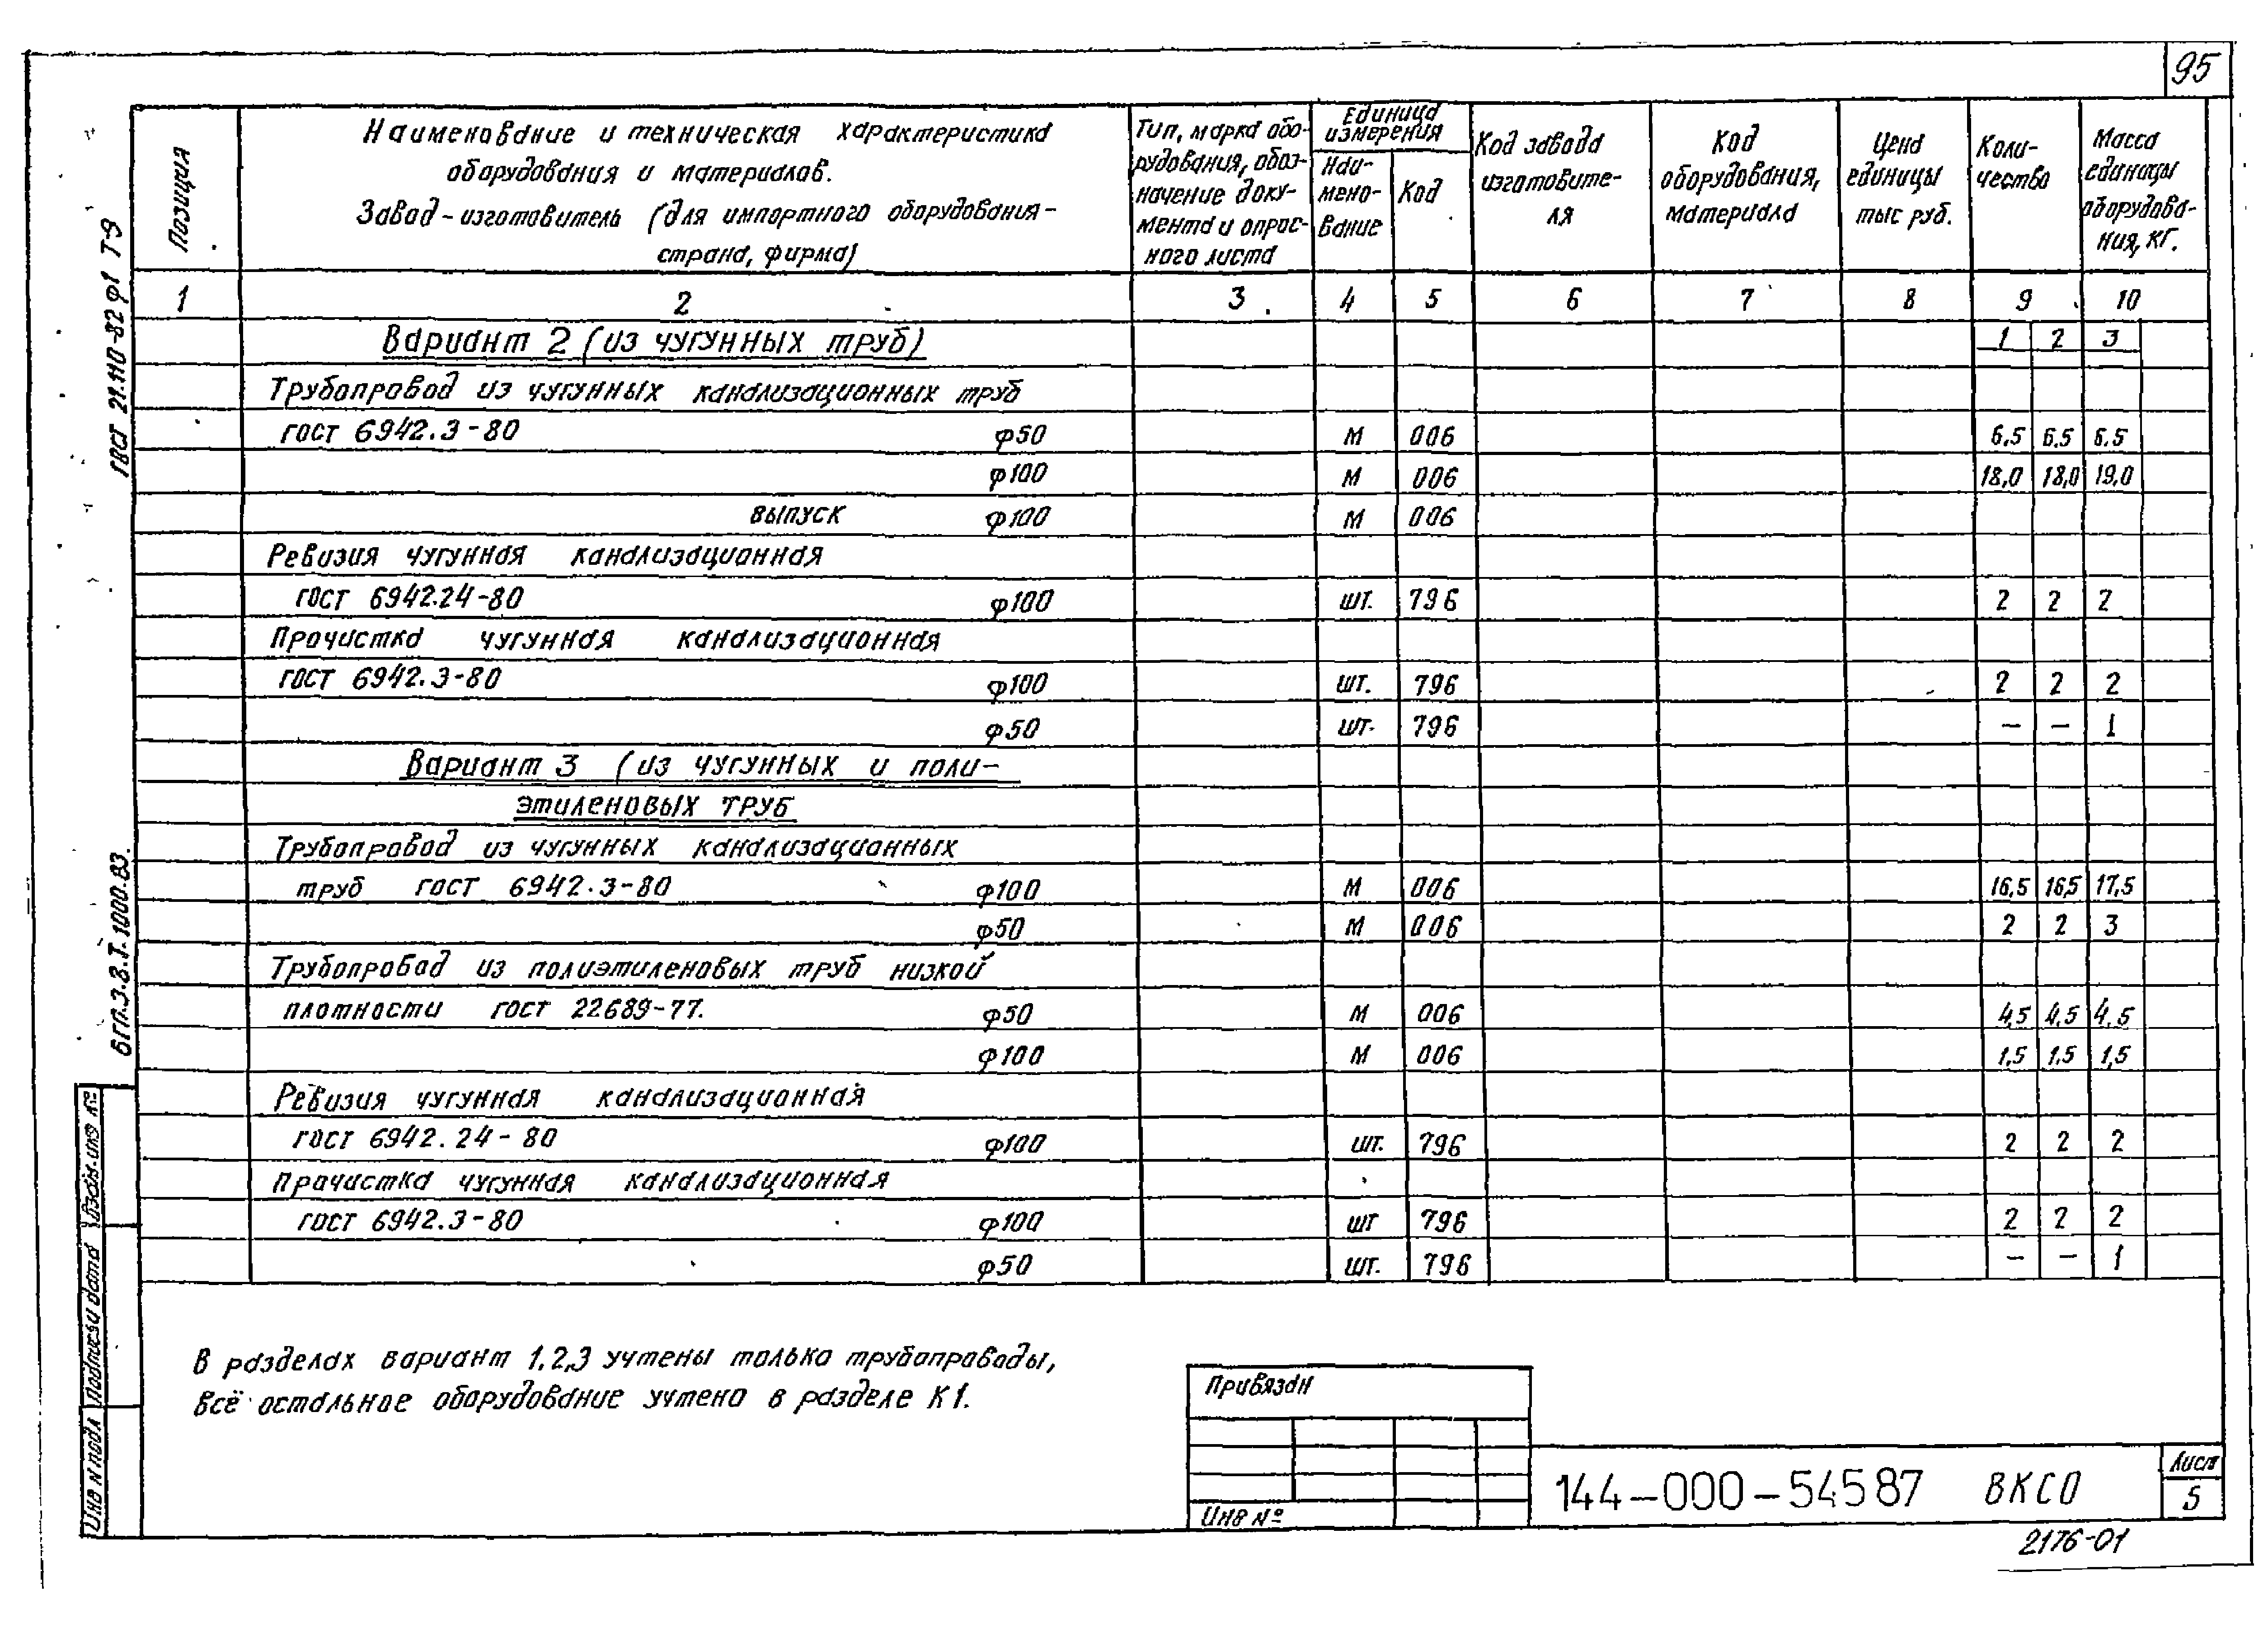 95
Позиция
Наименование и техническая характеристика
оборудования и материалов.
Завод-изготовитель (для импортного оборудования-
страна, фирма)
Тип, марка обо-
рудования, обоз-
начение доку-
мента и опрос-
ного листа
Единица
измерения
Наи-
мено-
вание
Код
Код завода
изготовите-
ля
Код
оборудования,
материала
Цена
единицы
тыс руб.
Коли-
чество
Масса
единицы
оборудова-
ния, кг.
1 2 3 4 5 6 7 8 9 10
Вариант 2 (из чугунных труб) 1 2 3
Трубопровод из чугунных канализационных труб
гост 6942.3-80 ф50 м 006 6.5 6.5 6.5
ф100 м 006 18,0 18,0 19,0
выпуск ф100 м 006
Ревизия чугунная канализационная
гост 6942.24-80 ф100 шт. 796 2 2 2
Прочистка чугунная канализационная
гост 6942.3-80 ф100 шт. 796 2 2 2
ф50 шт. 796 — — 1
Вариант 3 (из чугунных и поли-
этиленовых труб
Трубопровод из чугунных канализационных
труб гост 6942.3-80 ф100 м 006 16,5 16,5 17,5
ф50 м 006 2 2 3
Трубопровод из полиэтиленовых труб низкой
плотности гост 22689-77. ф50 м 006 4,5 4,5 4,5
ф100 м 006 1,5 1,5 1,5
Ревизия чугунная канализационная
гост 6942.24-80 ф100 шт. 796 2 2 2
Прочистка чугунная канализационная
гост 6942.3-80 ф100 шт 796 2 2 2
ф50 шт. 796 — — 1
В разделах вариант 1,2,3 учтены только трубопроводы,
всё остальное оборудование учтено в разделе К1.
Привязан
Инв №
144-000-545 87 ВКСО
Лист
5
2176-01
21.110-82 ф1 Т-9
6гп.3.8.Т.1000.83.
Взам. инв №
Подпись и дата
Инв N подл